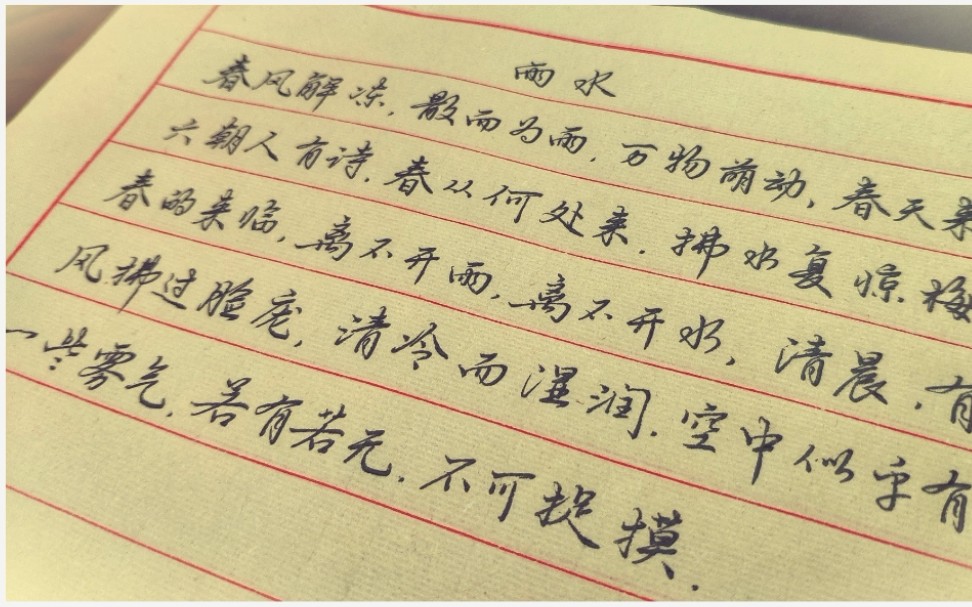 雨水
春风解冻,散而为雨,万物萌动,春天来
六朝人有诗,春从何处来,拂水复惊梅
春的来临,离不开雨,离不开水,清晨,有
风拂过脸庞,清冷而湿润,空中似乎有
一些雾气,若有若无,不可捉摸.